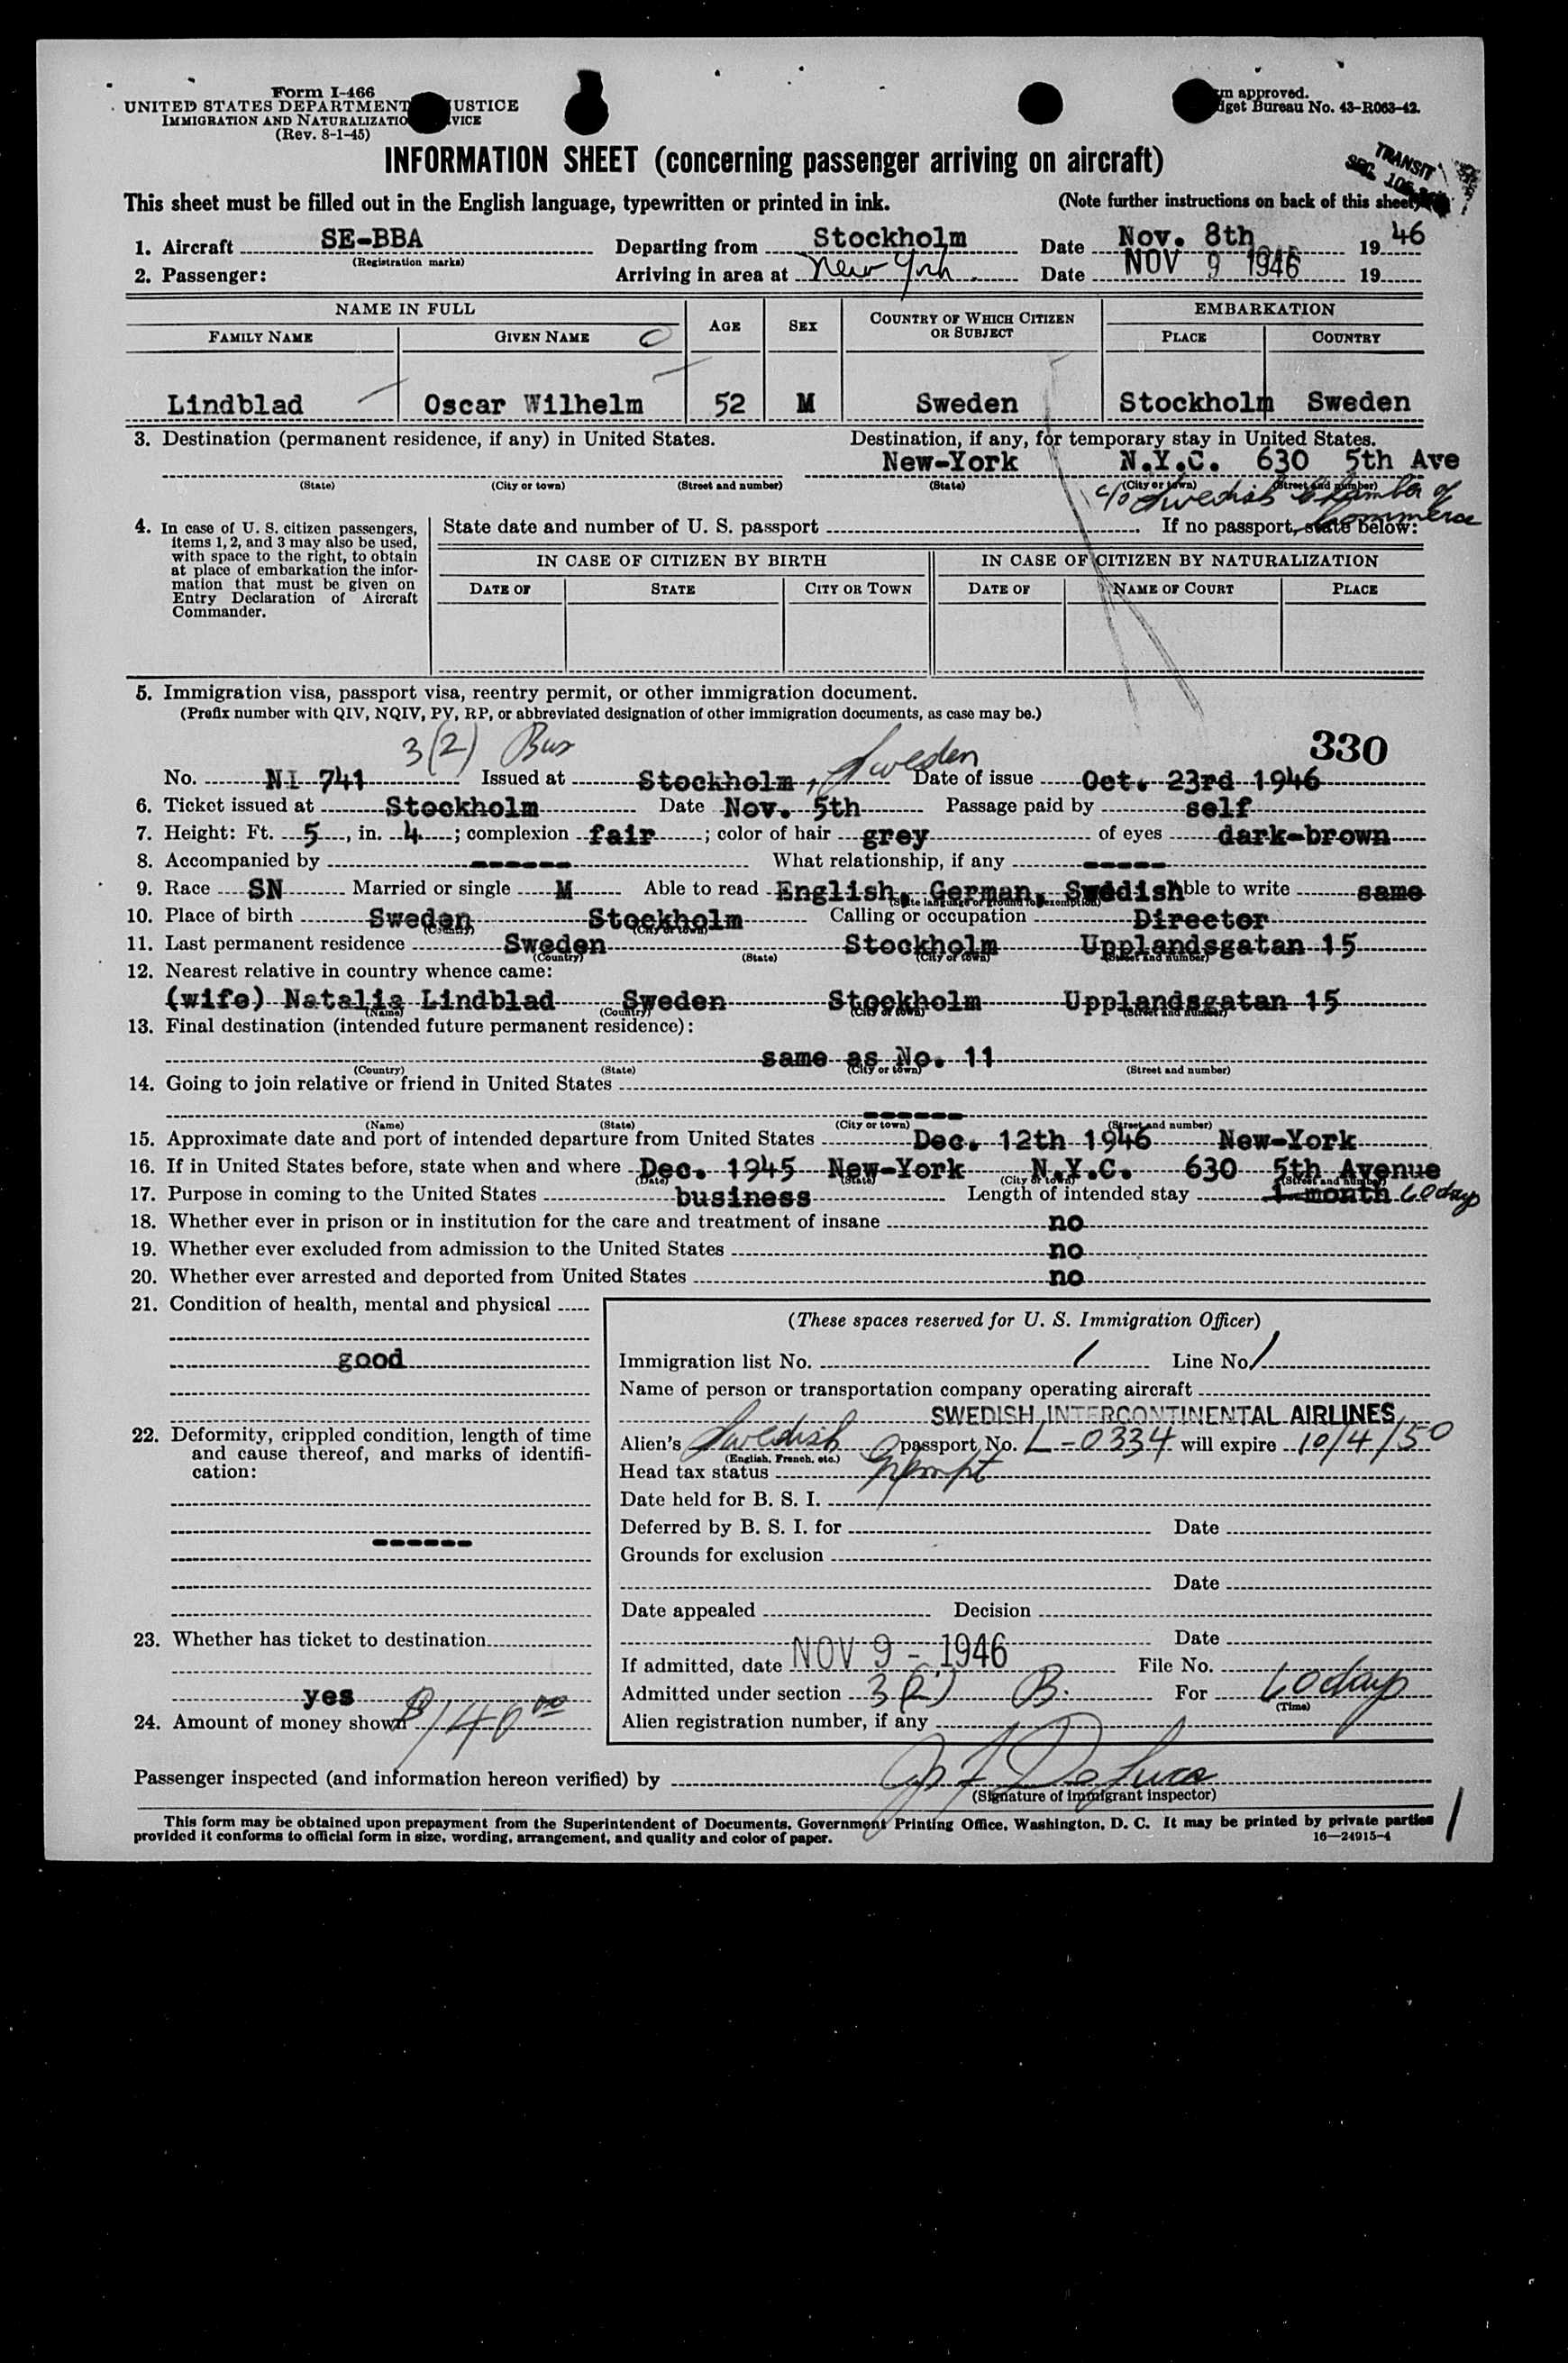 Form I-466
UNITED STATES DEPARTMENT USTICE
IMMIGRATION AND NATURALIZATIO VICE
(Rev. 8-1-45)
m approved.
dget Bureau No. 43-R063-42.
INFORMATION SHEET (concerning passenger arriving on aircraft)
TRANSIT
SEC.
This sheet must be filled out in the English language, typewritten or printed in ink. (Note further instructions on back of this sheet)
1. Aircraft SE-BBA Departing from Stockholm Date Nov. 8th 19 46
(Registration marks)
2. Passenger: Arriving in area at New York Date NOV 9 1946 19
NAME IN FULL AGE SEX COUNTRY OF WHICH CITIZEN OR SUBJECT EMBARKATION
FAMILY NAME GIVEN NAME PLACE COUNTRY
Lindblad Oscar Wilhelm 52 M Sweden Stockholm Sweden
3. Destination (permanent residence, if any) in United States. Destination, if any, for temporary stay in United States.
New-York N.Y.C. 630 5th Ave
(State) (City or town) (Street and number) (State) (City or town) (Street and number)
c/o Swedish Chamber of Commerce
4. In case of U. S. citizen passengers, items 1, 2, and 3 may also be used, with space to the right, to obtain at place of embarkation the information that must be given on Entry Declaration of Aircraft Commander.
State date and number of U. S. passport If no passport, state below:
IN CASE OF CITIZEN BY BIRTH IN CASE OF CITIZEN BY NATURALIZATION
DATE OF STATE CITY OR TOWN DATE OF NAME OF COURT PLACE
5. Immigration visa, passport visa, reentry permit, or other immigration document.
(Prefix number with QIV, NQIV, PV, RP, or abbreviated designation of other immigration documents, as case may be.)
3(2) Bus 330
No. NI 741 Issued at Stockholm, Sweden Date of issue Oct. 23rd 1946
6. Ticket issued at Stockholm Date Nov. 5th Passage paid by self
7. Height: Ft. 5, in. 4; complexion fair; color of hair grey of eyes dark-brown
8. Accompanied by ------ What relationship, if any -----
9. Race SN Married or single M Able to read English, German, Swedish Able to write same
(State language or ground for exemption)
10. Place of birth Sweden Stockholm Calling or occupation Director
(Country) (City or town)
11. Last permanent residence Sweden Stockholm Upplandsgatan 15
(Country) (State) (City or town) (Street and number)
12. Nearest relative in country whence came:
(wife) Natalia Lindblad Sweden Stockholm Upplandsgatan 15
(Name) (Country) (City or town) (Street and number)
13. Final destination (intended future permanent residence):
same as No. 11
(Country) (State) (City or town) (Street and number)
14. Going to join relative or friend in United States
------
(Name) (State) (City or town) (Street and number)
15. Approximate date and port of intended departure from United States Dec. 12th 1946 New-York
16. If in United States before, state when and where Dec. 1945 New-York N.Y.C. 630 5th Avenue
(Date) (State) (City or town) (Street and number)
17. Purpose in coming to the United States business Length of intended stay 1 month 60 days
18. Whether ever in prison or in institution for the care and treatment of insane no
19. Whether ever excluded from admission to the United States no
20. Whether ever arrested and deported from United States no
21. Condition of health, mental and physical
good
22. Deformity, crippled condition, length of time and cause thereof, and marks of identification:
------
23. Whether has ticket to destination
yes
24. Amount of money shown $146 00
(These spaces reserved for U. S. Immigration Officer)
Immigration list No. 1 Line No. 1
Name of person or transportation company operating aircraft
SWEDISH INTERCONTINENTAL AIRLINES
Alien's Swedish passport No. L-0334 will expire 10/4/50
(English, French, etc.)
Head tax status Exempt
Date held for B. S. I.
Deferred by B. S. I. for Date
Grounds for exclusion
Date
Date appealed Decision
Date
If admitted, date NOV 9 - 1946 File No.
Admitted under section 3(2) B. For 60 days
(Time)
Alien registration number, if any
Passenger inspected (and information hereon verified) by
(Signature of immigrant inspector)
This form may be obtained upon prepayment from the Superintendent of Documents, Government Printing Office, Washington, D. C. It may be printed by private parties
provided it conforms to official form in size, wording, arrangement, and quality and color of paper. 16—24915-4